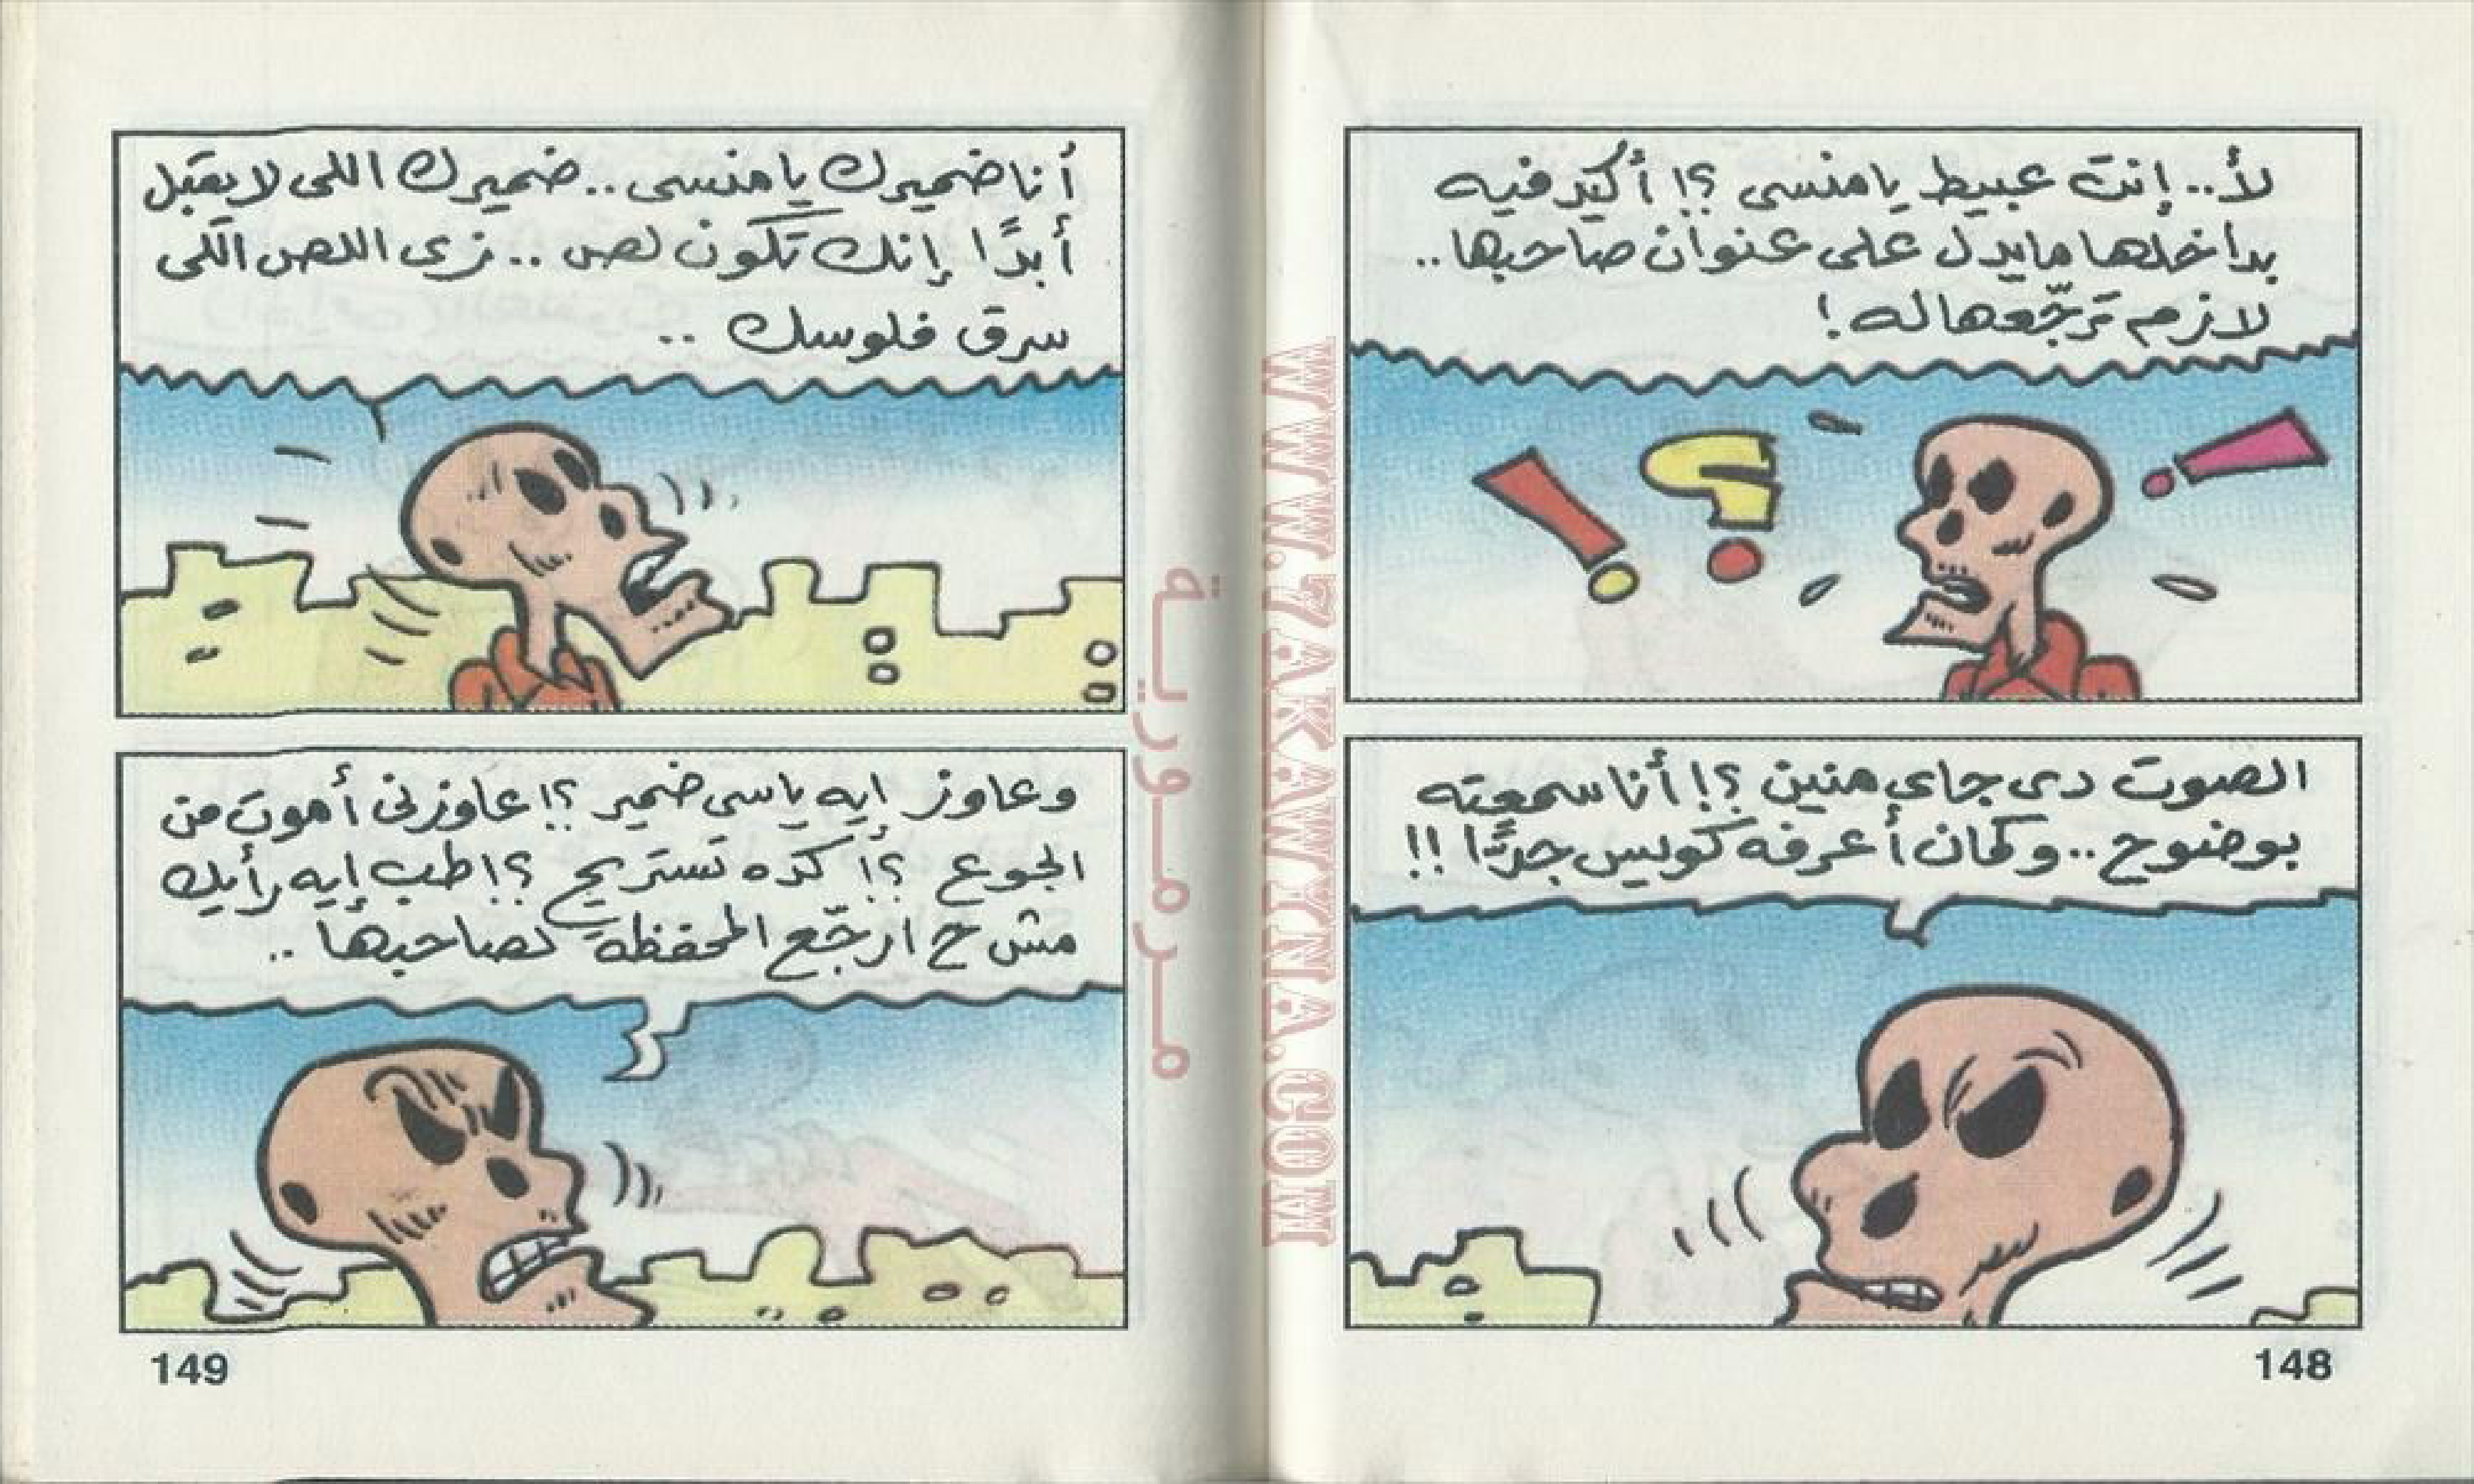 لأ.. إنت عبيط يا منسى ؟! أكيد فيه
بداخلها ما يدل على عنوان صاحبها..
لازم ترجّعها له !
الصوت دى جاى منين ؟! أنا سمعته
بوضوح .. وكمان أعرفه كويس جدًا !!
148
أنا ضميرك يا منسى .. ضميرك اللى لا يقبل
أبدًا إنك تكون لص .. زى اللص اللى
سرق فلوسك ..
وعاوز إيه ياسى ضمير ؟! عاوزنى أموت من
الجوع ؟! كده تستريح ؟! طب إيه رأيك
مش ح ارجّع المحفظة لصاحبها ..
149
مرمورية
WWW.7AKAWYNA.COM